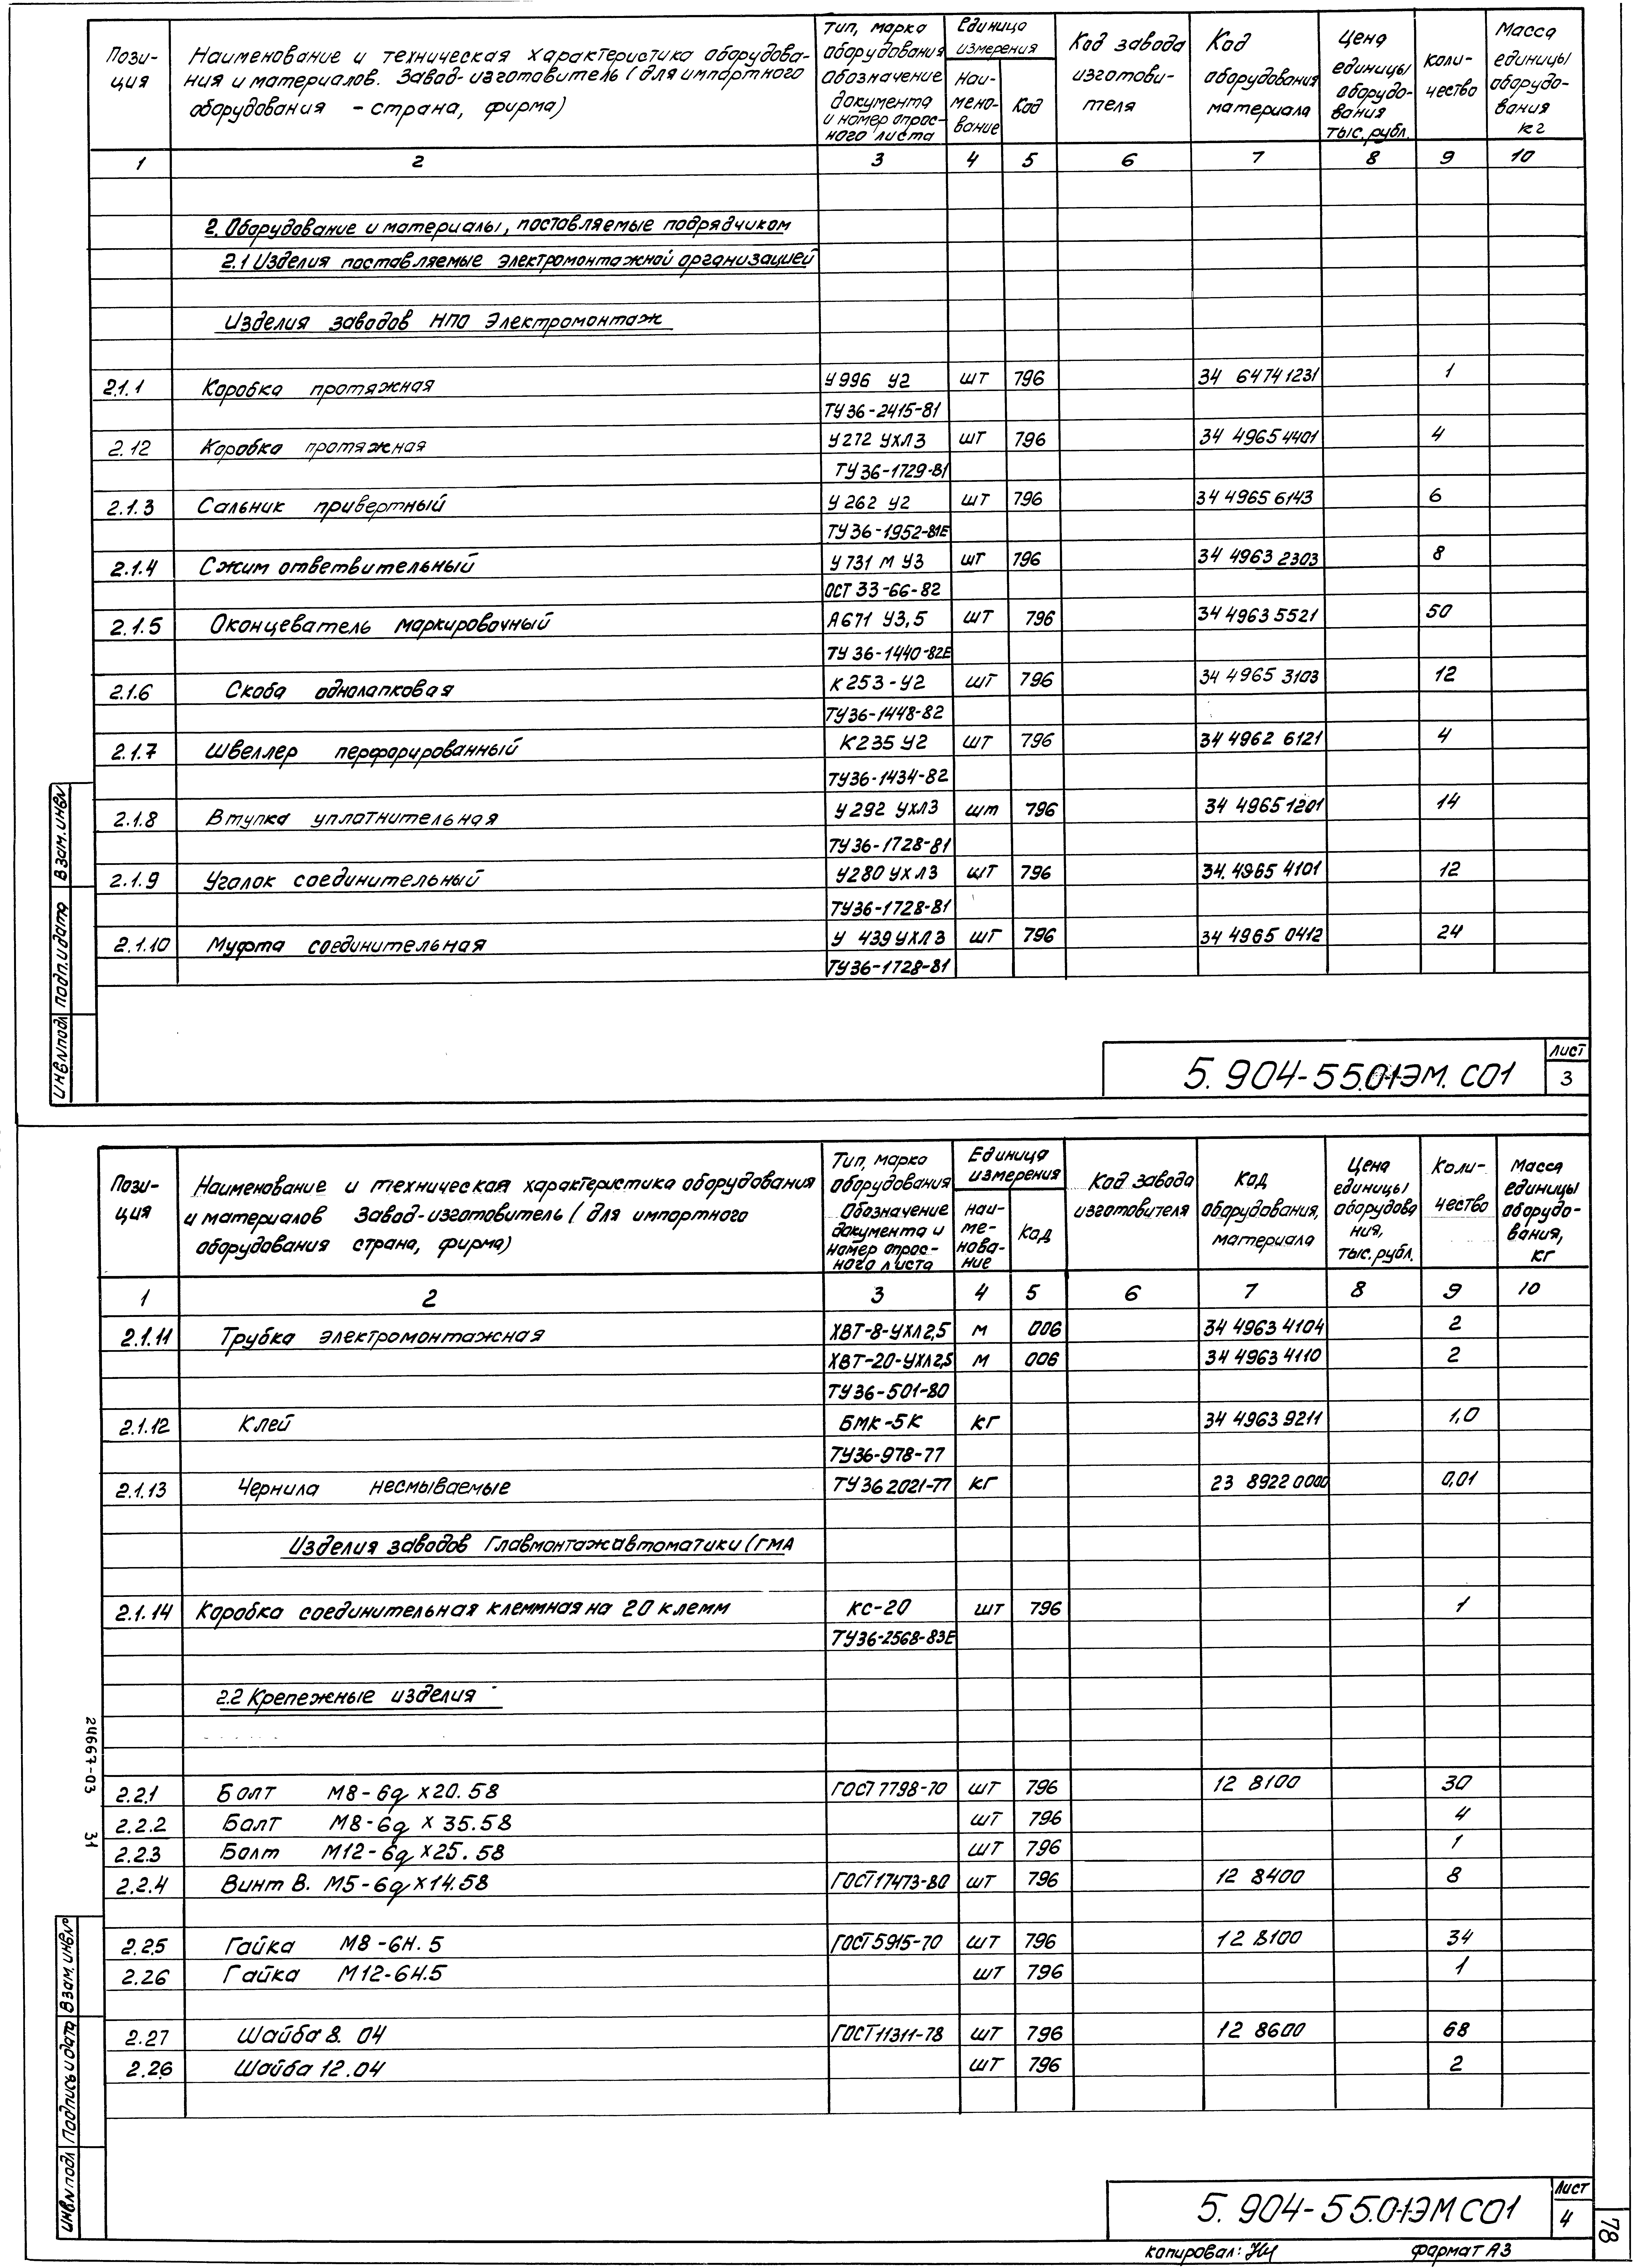 Пози-
ция
Наименование и техническая характеристика оборудова-
ния и материалов. Завод-изготовитель (для импортного
оборудования - страна, фирма)
Тип, марка
оборудования
обозначение
документа
и номер опрос-
ного листа
Единица
измерения
Наи-
мено-
вание
Код
Код завода
изготови-
теля
Код
оборудования
материала
Цена
единицы
оборудо-
вания
тыс. рубл.
Коли-
чество
Масса
единицы
оборудо-
вания
кг
1 2 3 4 5 6 7 8 9 10
2. Оборудование и материалы, поставляемые подрядчиком
2.1 Изделия поставляемые электромонтажной организацией
Изделия заводов НПО Электромонтаж
2.1.1 Коробка протяжная У996 У2 шт 796 34 64741231 1
ТУ36-2415-81
2.12 Коробка протяжная У272 УХЛ3 шт 796 34 49654401 4
ТУ36-1729-81
2.1.3 Сальник привертный У262 У2 шт 796 34 4965 6143 6
ТУ36-1952-81Е
2.1.4 Сжим ответвительный У731 М У3 шт 796 34 4963 2303 8
ОСТ 33-66-82
2.1.5 Оконцеватель маркировочный А671 У3,5 шт 796 34 4963 5521 50
ТУ 36-1440-82Е
2.1.6 Скоба однолапковая К253-У2 шт 796 34 4965 3103 12
ТУ36-1448-82
2.1.7 Швеллер перфорированный К235 У2 шт 796 34 4962 6121 4
ТУ36-1434-82
2.1.8 Втулка уплотнительная У292 УХЛ3 шт 796 34 49651201 14
ТУ36-1728-81
2.1.9 Уголок соединительный У280 УХЛ3 шт 796 34. 4965 4101 12
ТУ36-1728-81
2.1.10 Муфта соединительная У 439 УХЛ3 шт 796 34 4965 0412 24
ТУ36-1728-81
Инв.N подл Подп. и дата Взам. инв N
5. 904-55.01-ЭМ. СО1
Лист
3
Пози-
ция
Наименование и техническая характеристика оборудования
и материалов Завод-изготовитель (для импортного
оборудования страна, фирма)
Тип, марка
оборудования
Обозначение
документа и
номер опрос-
ного листа
Единица
измерения
наи-
ме-
нова-
ние
Код
Код завода
изготовителя
Код
оборудования,
материала
Цена
единицы
оборудова
ния,
тыс. рубл.
Коли-
чество
Масса
единицы
оборудо-
вания,
кг
1 2 3 4 5 6 7 8 9 10
2.1.11 Трубка электромонтажная ХВТ-8-УХЛ2,5 м 006 34 4963 4104 2
ХВТ-20-УХЛ2,5 м 006 34 4963 4110 2
ТУ36-501-80
2.1.12 Клей БМК-5К кг 34 4963 9211 1,0
ТУ36-978-77
2.1.13 Чернила несмываемые ТУ36 2021-77 кг 23 8922 0000 0,01
Изделия заводов Главмонтажавтоматики (ГМА
2.1.14 Коробка соединительная клеммная на 20 клемм КС-20 шт 796 1
ТУ36-2568-83Е
2.2 Крепежные изделия
2.2.1 Болт М8-6g x20.58 ГОСТ 7798-70 шт 796 12 8100 30
2.2.2 Болт М8-6g x 35.58 шт 796 4
2.2.3 Болт М12-6g x25.58 шт 796 1
2.2.4 Винт В. М5-6g x14.58 ГОСТ 17473-80 шт 796 12 8400 8
2.2.5 Гайка М8-6Н.5 ГОСТ 5915-70 шт 796 12 8100 34
2.26 Гайка М12-6Н.5 шт 796 1
2.27 Шайба 8. 04 ГОСТ 11311-78 шт 796 12 8600 68
2.26 Шайба 12.04 шт 796 2
24667-03 31
Инв.N подл Подпись и дата Взам. инв.№
5. 904-55.0-1ЭМ СО1
Лист
4
78
копировал:
формат А3